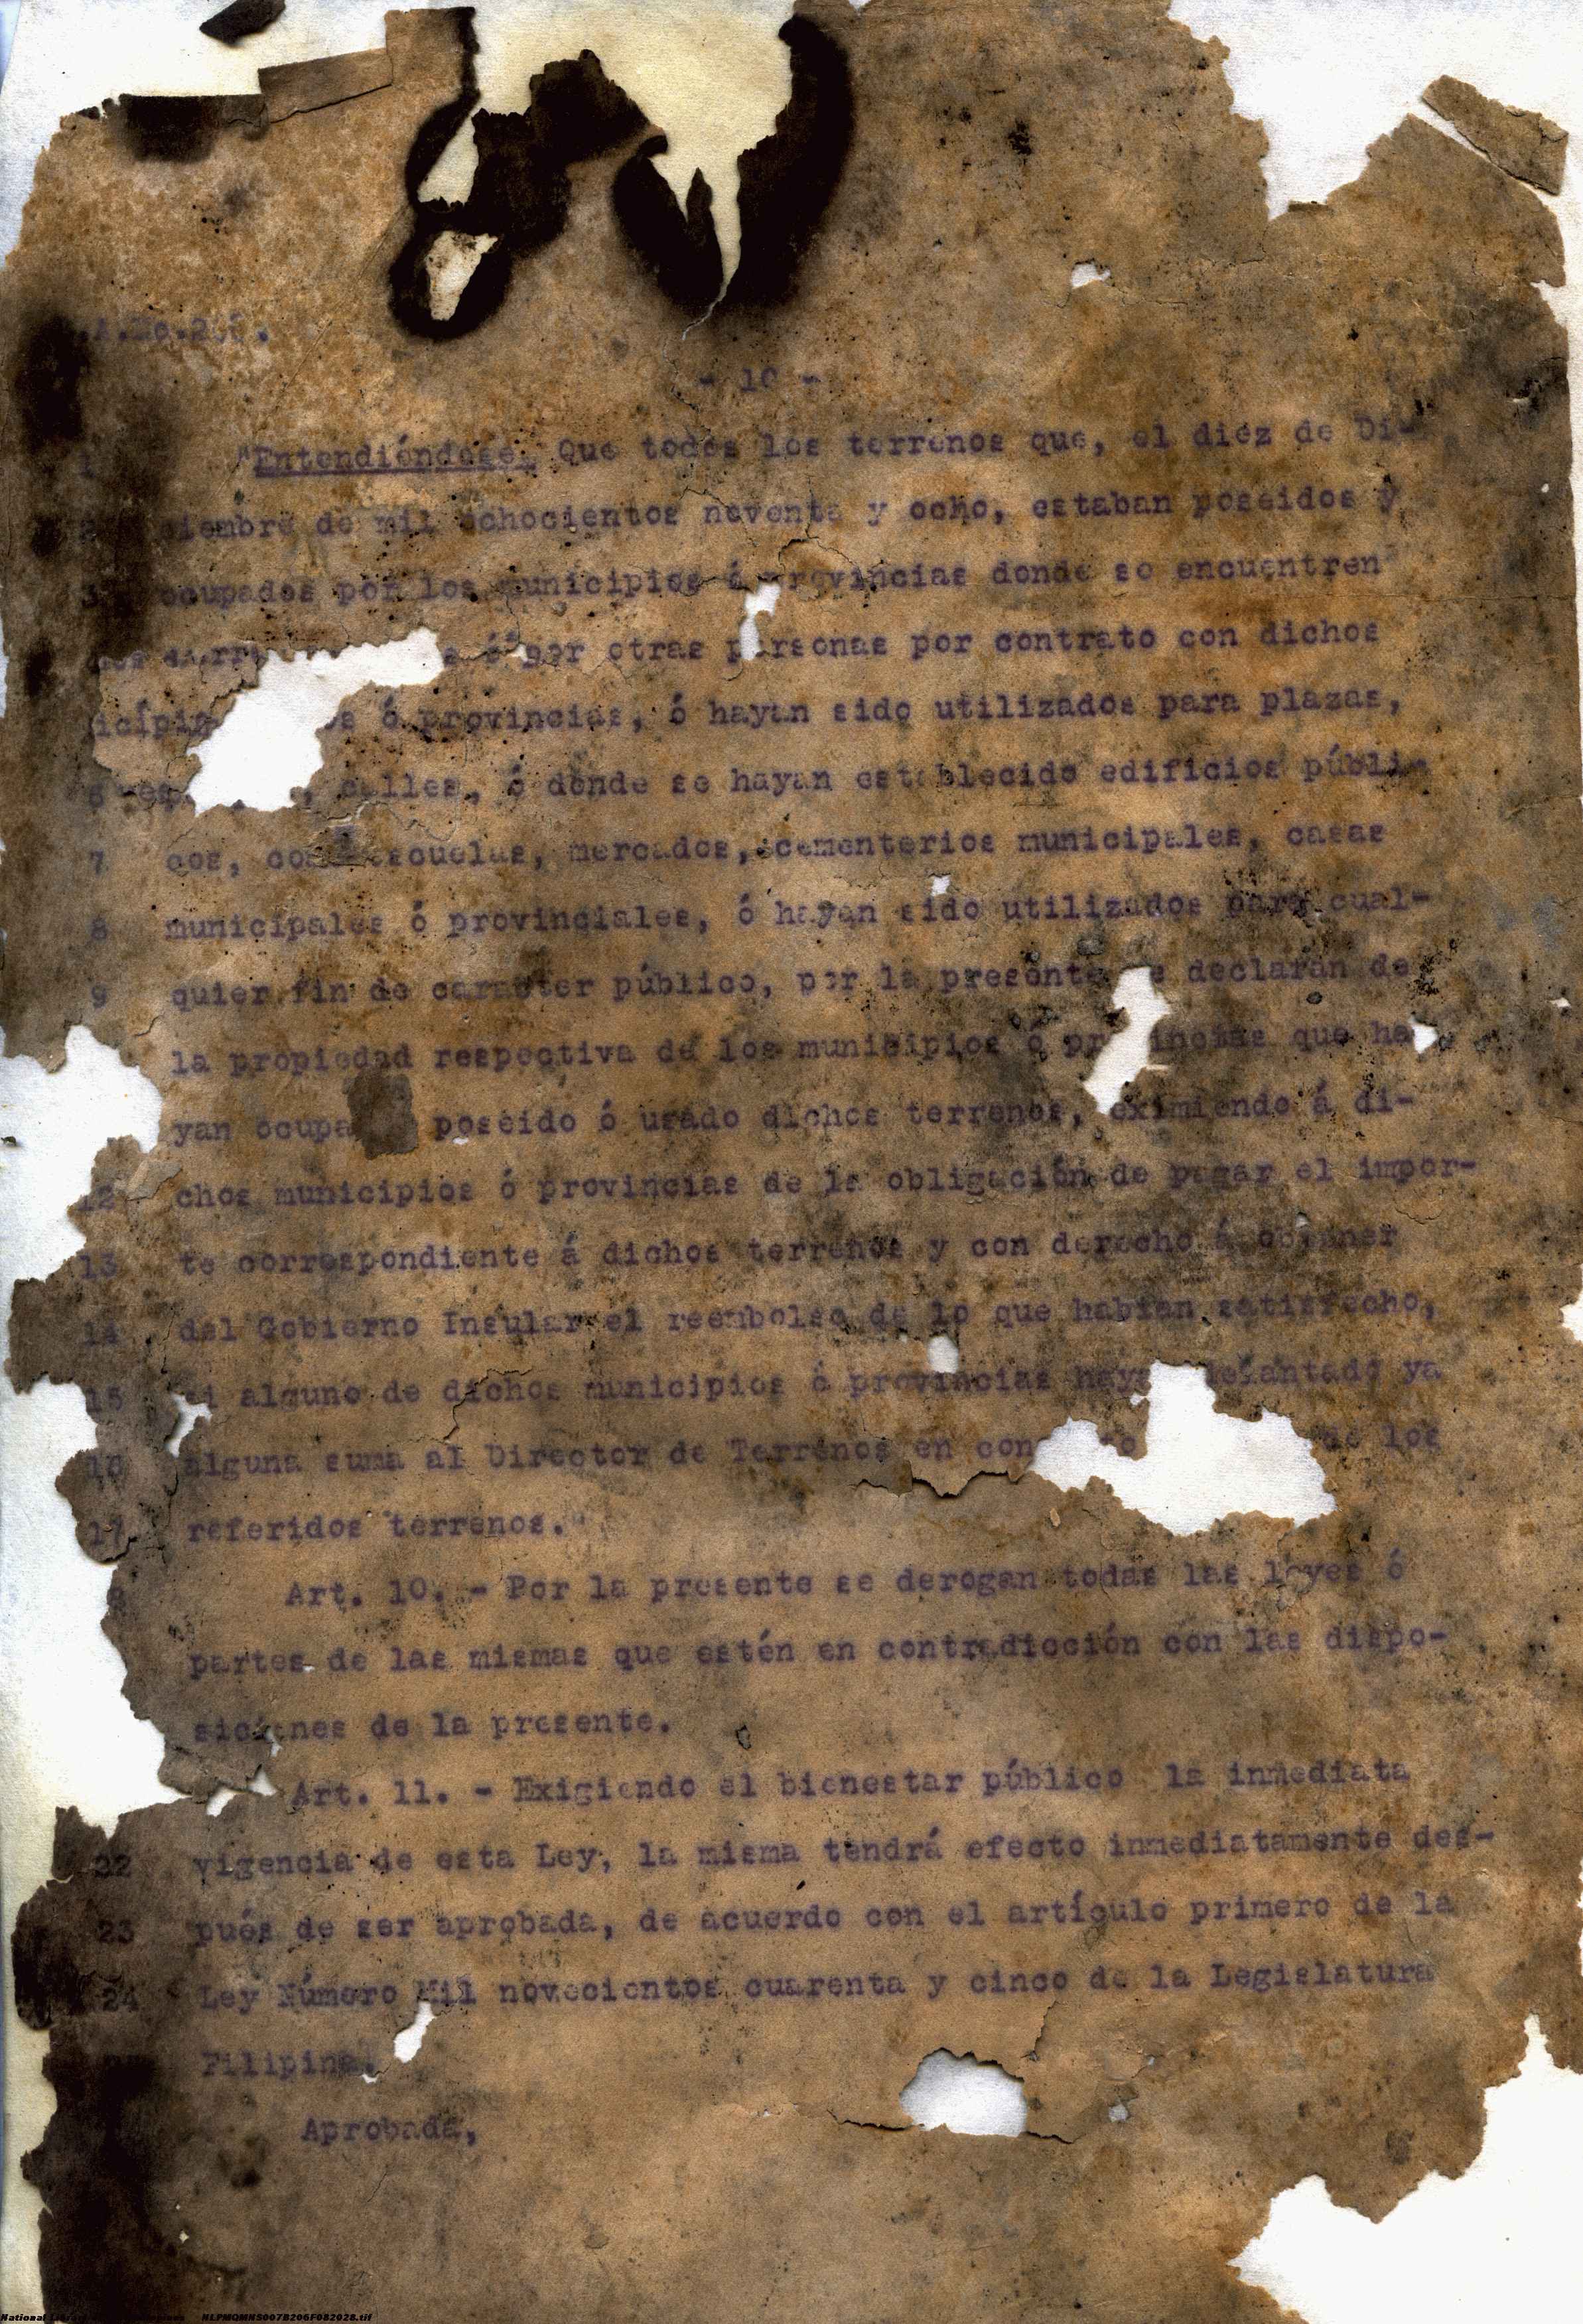 - 10 -
"Entendiéndose, Que todos los terrenos que, el diez de Di-
ciembre de mil ochocientos noventa y ocho, estaban poseidos y
3 ocupados por los municipios ó provincias donde se encuentren
ó por otras personas por contrato con dichos
ó provincias, ó hayan sido utilizados para plazas,
6 calles, ó donde se hayan establecido edificios públi-
7 cos, escuelas, mercados, cementerios municipales, casas
8 municipales ó provinciales, ó hayan sido utilizados para cual-
9 quier fin de caracter público, por la presente se declaran de
la propiedad respectiva de los municipios ó provincias que ha-
yan poseido ó usado dichos terrenos, eximiendo á di-
12 chos municipios ó provincias de la obligación de pagar el impor-
13 te correspondiente á dichos terrenos y con derecho á obtener
14 del Gobierno Insular el reembolso de lo que habían satisfecho,
15 si alguno de dichos municipios ó provincias ya
16 alguna suma al Director de Terrenos en de los
17 referidos terrenos."
Art. 10. - Por la presente se derogan todas las leyes ó
partes de las mismas que estén en contradicción con las dispo-
siciones de la presente.
Art. 11. - Exigiendo el bienestar público la inmediata
22 vigencia de esta Ley, la misma tendrá efecto inmediatamente des-
23 pués de ser aprobada, de acuerdo con el artículo primero de la
24 Ley Número Mil novecientos cuarenta y cinco de la Legislatura
Filipina.
Aprobada,
National Library NLPMQMNS007B206F082028.tif